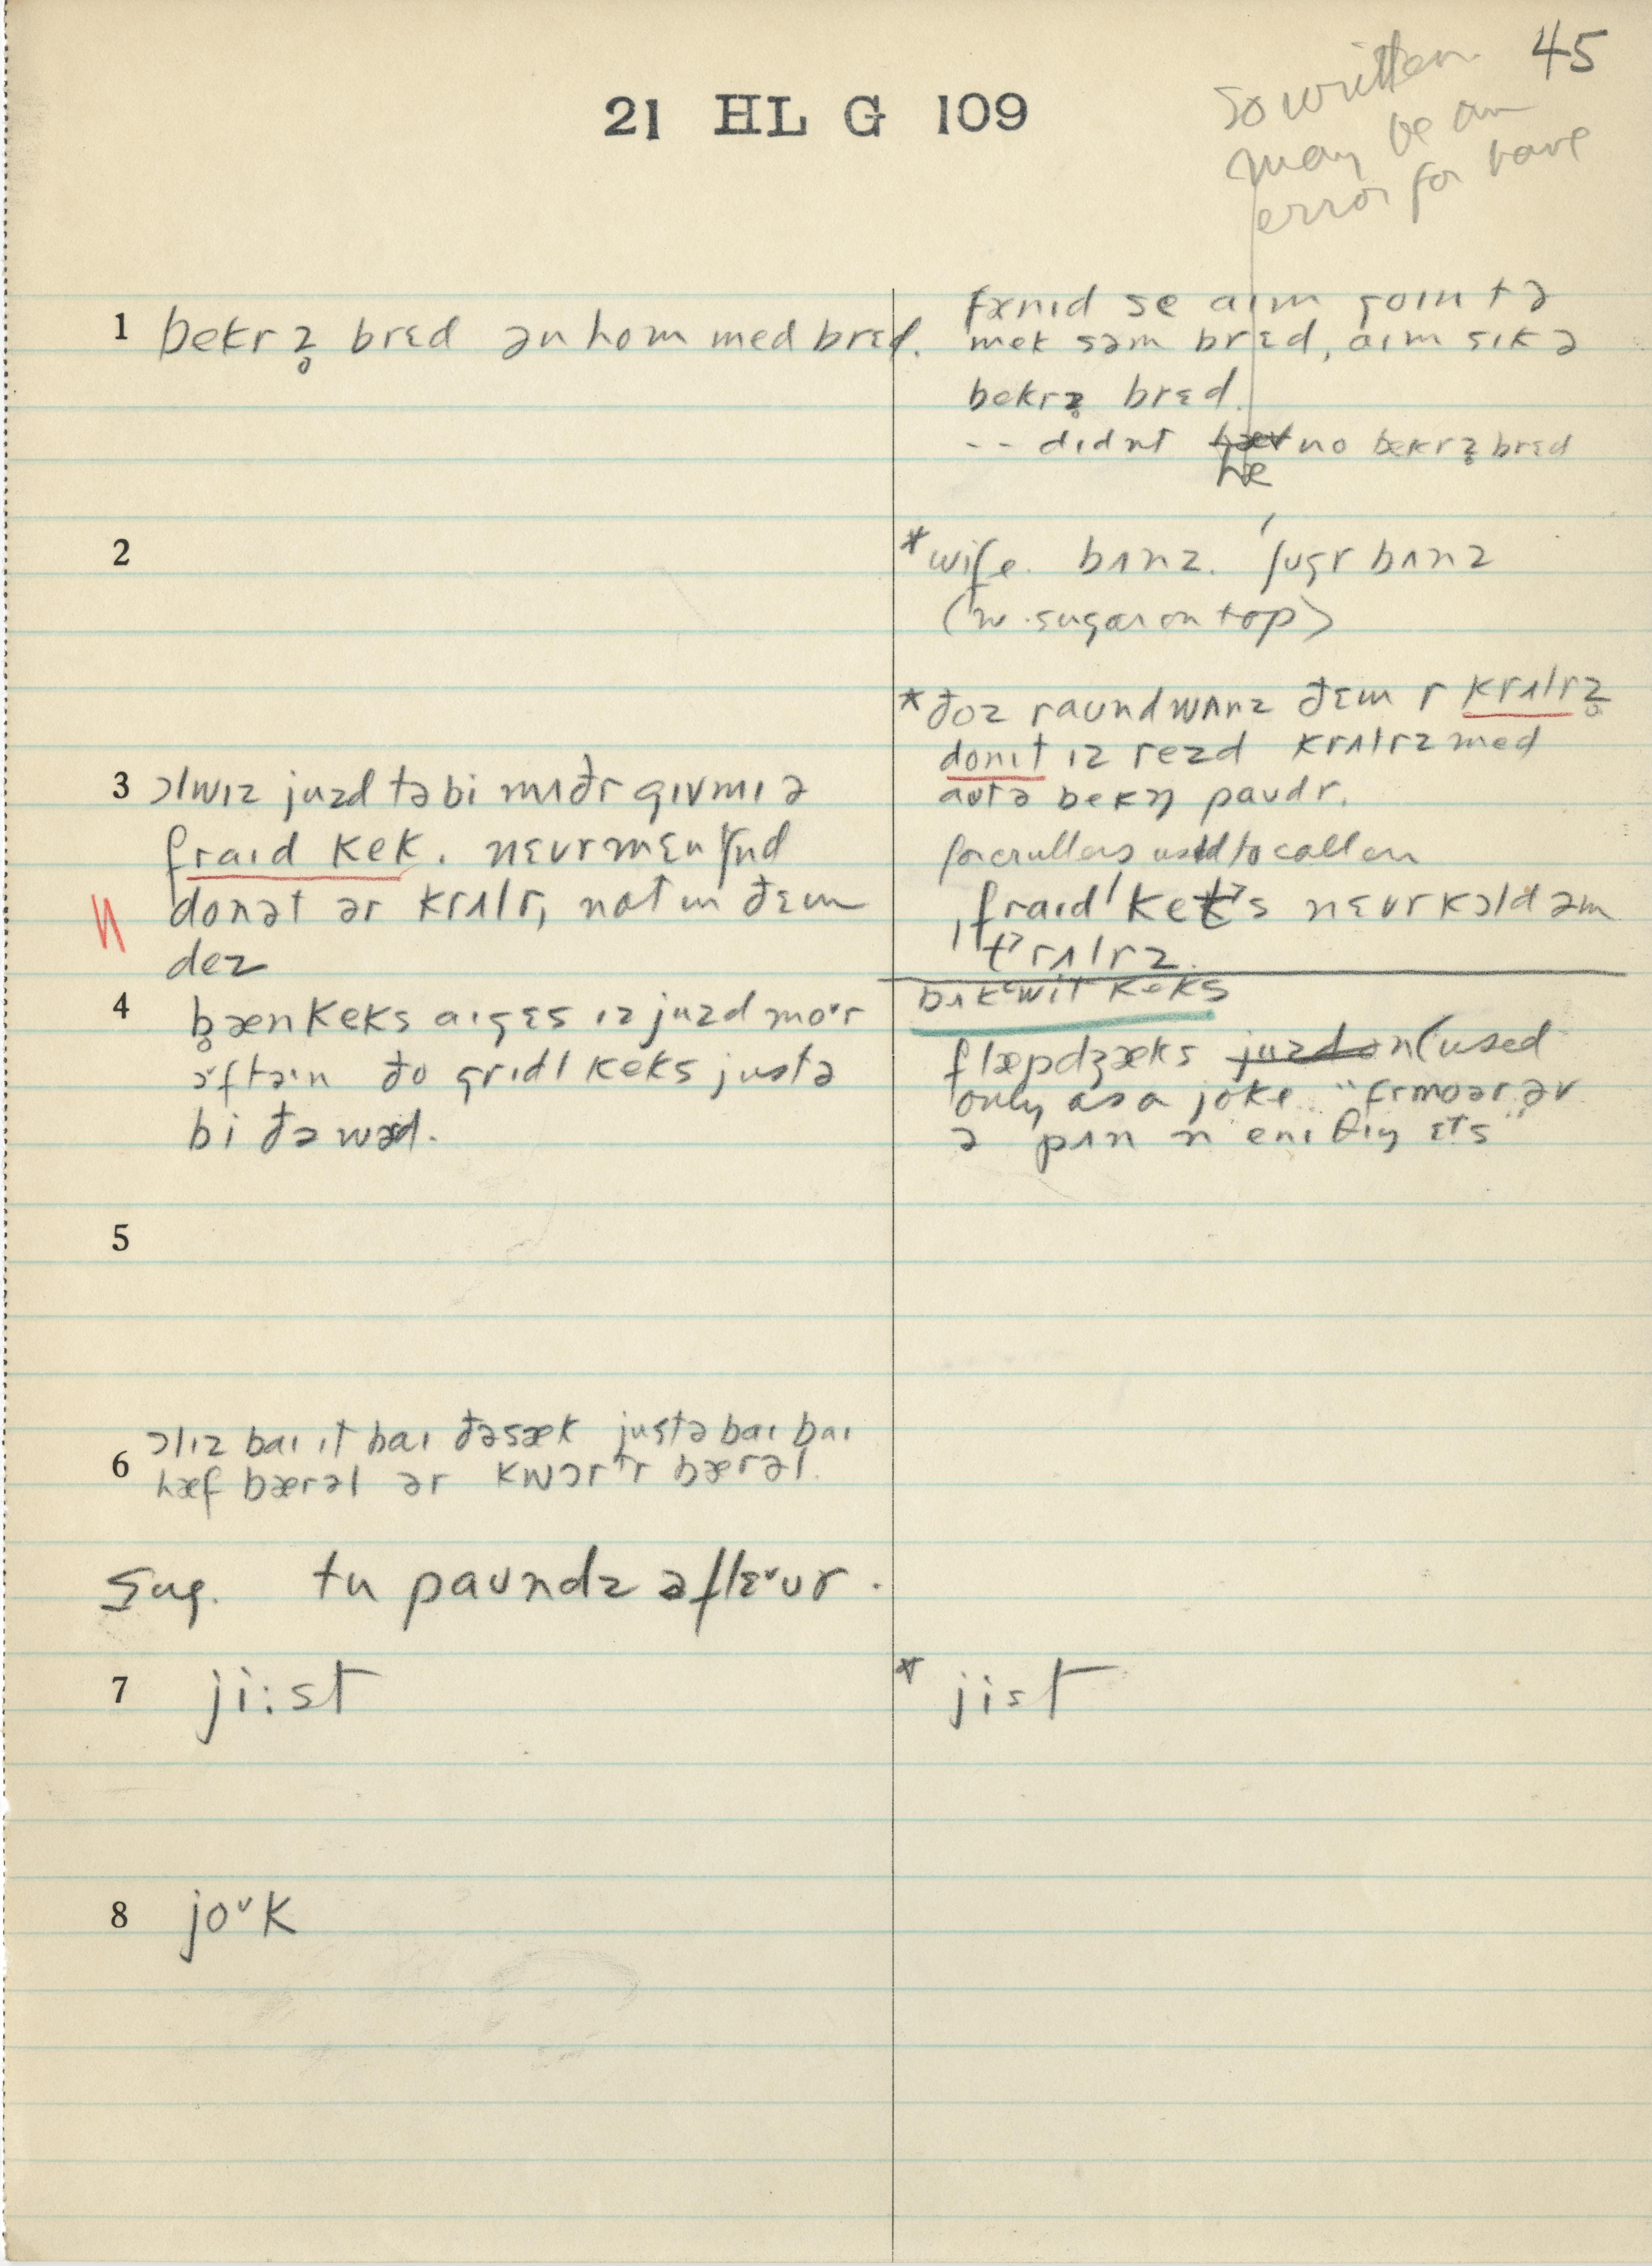 45
so written
may be an
error for have
21 HL G 109
1 bekrz̥ brɛd ən hom med brɛd.
fænɪd se aɪm goɪn tə
mek səm brɛd, aɪm sɪk ə
bekrz̥ brɛd.
-- dɪdnt hæ no bekrz̥ brɛd
2
*wife. bʌnz. ˈʃʊgr bʌnz
(w. sugar on top)
3 ɔlwɪz juzd tə bi mʌðr gɪv mɪ ə
fraɪd kek. nɛvr mɛnʃnd
donət ər krʌlr, not ɪn ðɛm
dez
*ðoz raʊnd wʌnz ðɛm r krʌlrz̥
donɪt ɪz rezd krʌlrz med
aʊtə bekŋ paʊdr.
for crullers used to call em
fraɪd keks nɛvr kɔld əm
krʌlrz.
4 b̥ænkeks aɪ gɛs ɪz juzd moᵊr
ɔftən ðo grɪdl keks justə
bi ðə wəd.
bʌkʍit keks
flæpdʒæks (used
only as a joke "fr moər əv
ə pʌn n enɪ θɪŋ ɛts"
5
6 ɔlɪz baɪ ɪt baɪ ðə sæk justə baɪ baɪ
hæf bærəl ər kwɔrtr bærəl.
Sug. tu paʊndz ə flɛᵛʊr.
7 ji:st
* jist
8 joᵛk